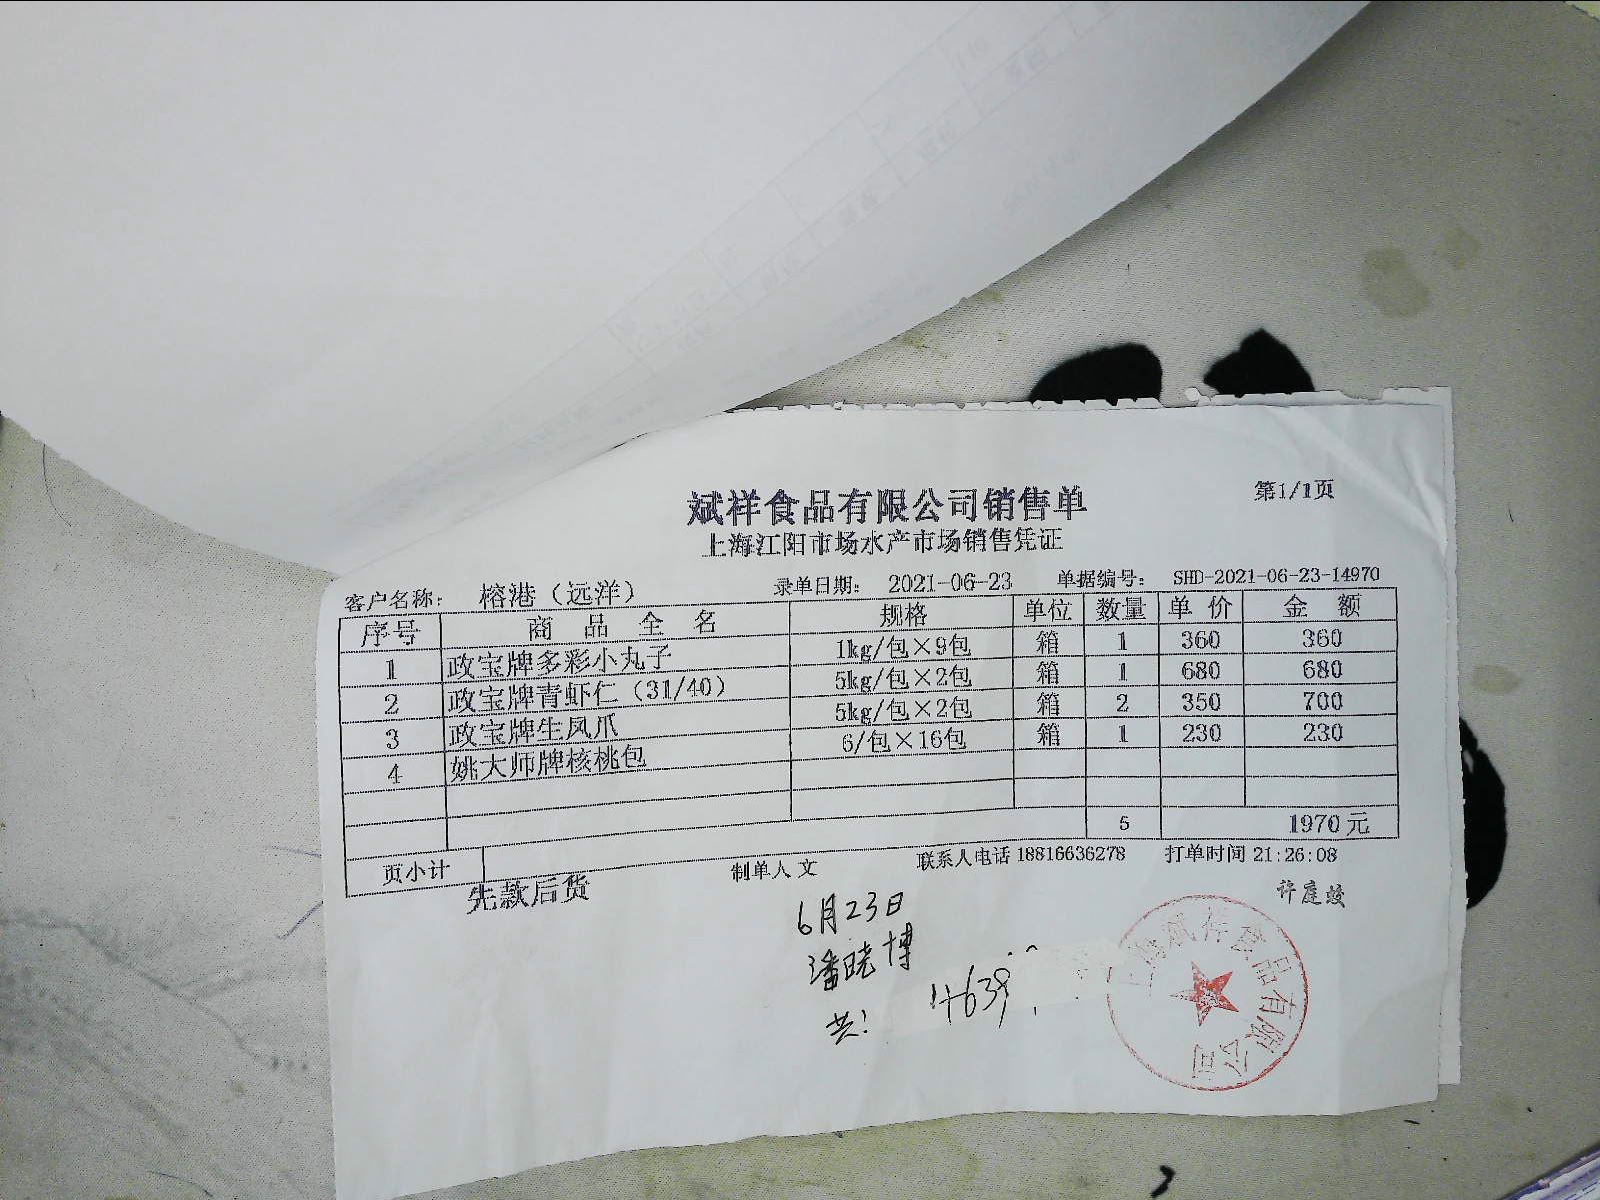 斌祥食品有限公司销售单
第1/1页
上海江阳市场水产市场销售凭证
客户名称: 榕港（远洋） 录单日期: 2021-06-23 单据编号: SHD-2021-06-23-14970
序号 商品全名 规格 单位 数量 单价 金额
1 政宝牌多彩小丸子 1kg/包×9包 箱 1 360 360
2 政宝牌青虾仁（31/40） 5kg/包×2包 箱 1 680 680
3 政宝牌生凤爪 5kg/包×2包 箱 2 350 700
4 姚大师牌核桃包 6/包×16包 箱 1 230 230
5 1970元
页小计 制单人 文 联系人电话 18816636278 打单时间 21:26:08
先款后货
许庭蛟
6月23日
潘晓博
共: 4639
上海斌祥食品有限公司